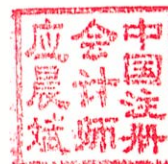 中国注册
会计师
应晨斌